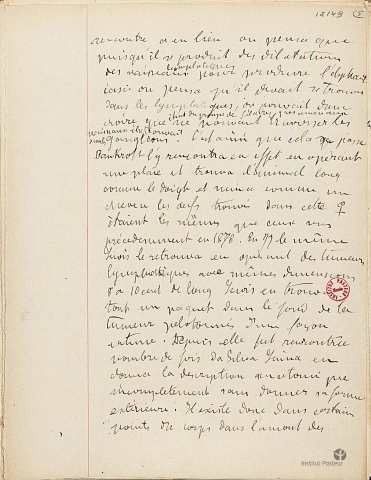 12149 5
rencontre a eu lieu on pensa que
puisqu'il se produit des dilatations
des vaisseaux lymphatiques pour produire l'éléphant
iasis on pensa qu'il devait se trouver
dans les lymphatiques, on pouvait donc
croire que ne pouvant traverser les
ganglions. C'est ainsi que cela se passe
Bankroft l'y rencontra en effet en opérant
une plaie et trouva l'animal long
comme le doigt et mince comme un
cheveu les œufs trouvés dans cette ♀
étaient les mêmes que ceux vus
précédemment en 1876. En 77 le même
Lewis le retrouva en opérant des tumeurs
lymphatiques avec mêmes dimensions
8 à 10 cent de long Lewis en trouva
tout un paquet dans le fond de la
tumeur pelotonnés d'une façon
intime. Depuis elle fut rencontrée
nombre de fois Da Silva Lima en
donna la description anatomique
incomplètement sans donner sa forme
extérieure. Il existe donc dans certains
points du corps dans l'amont des
INSTITUT PASTEUR
Institut Pasteur